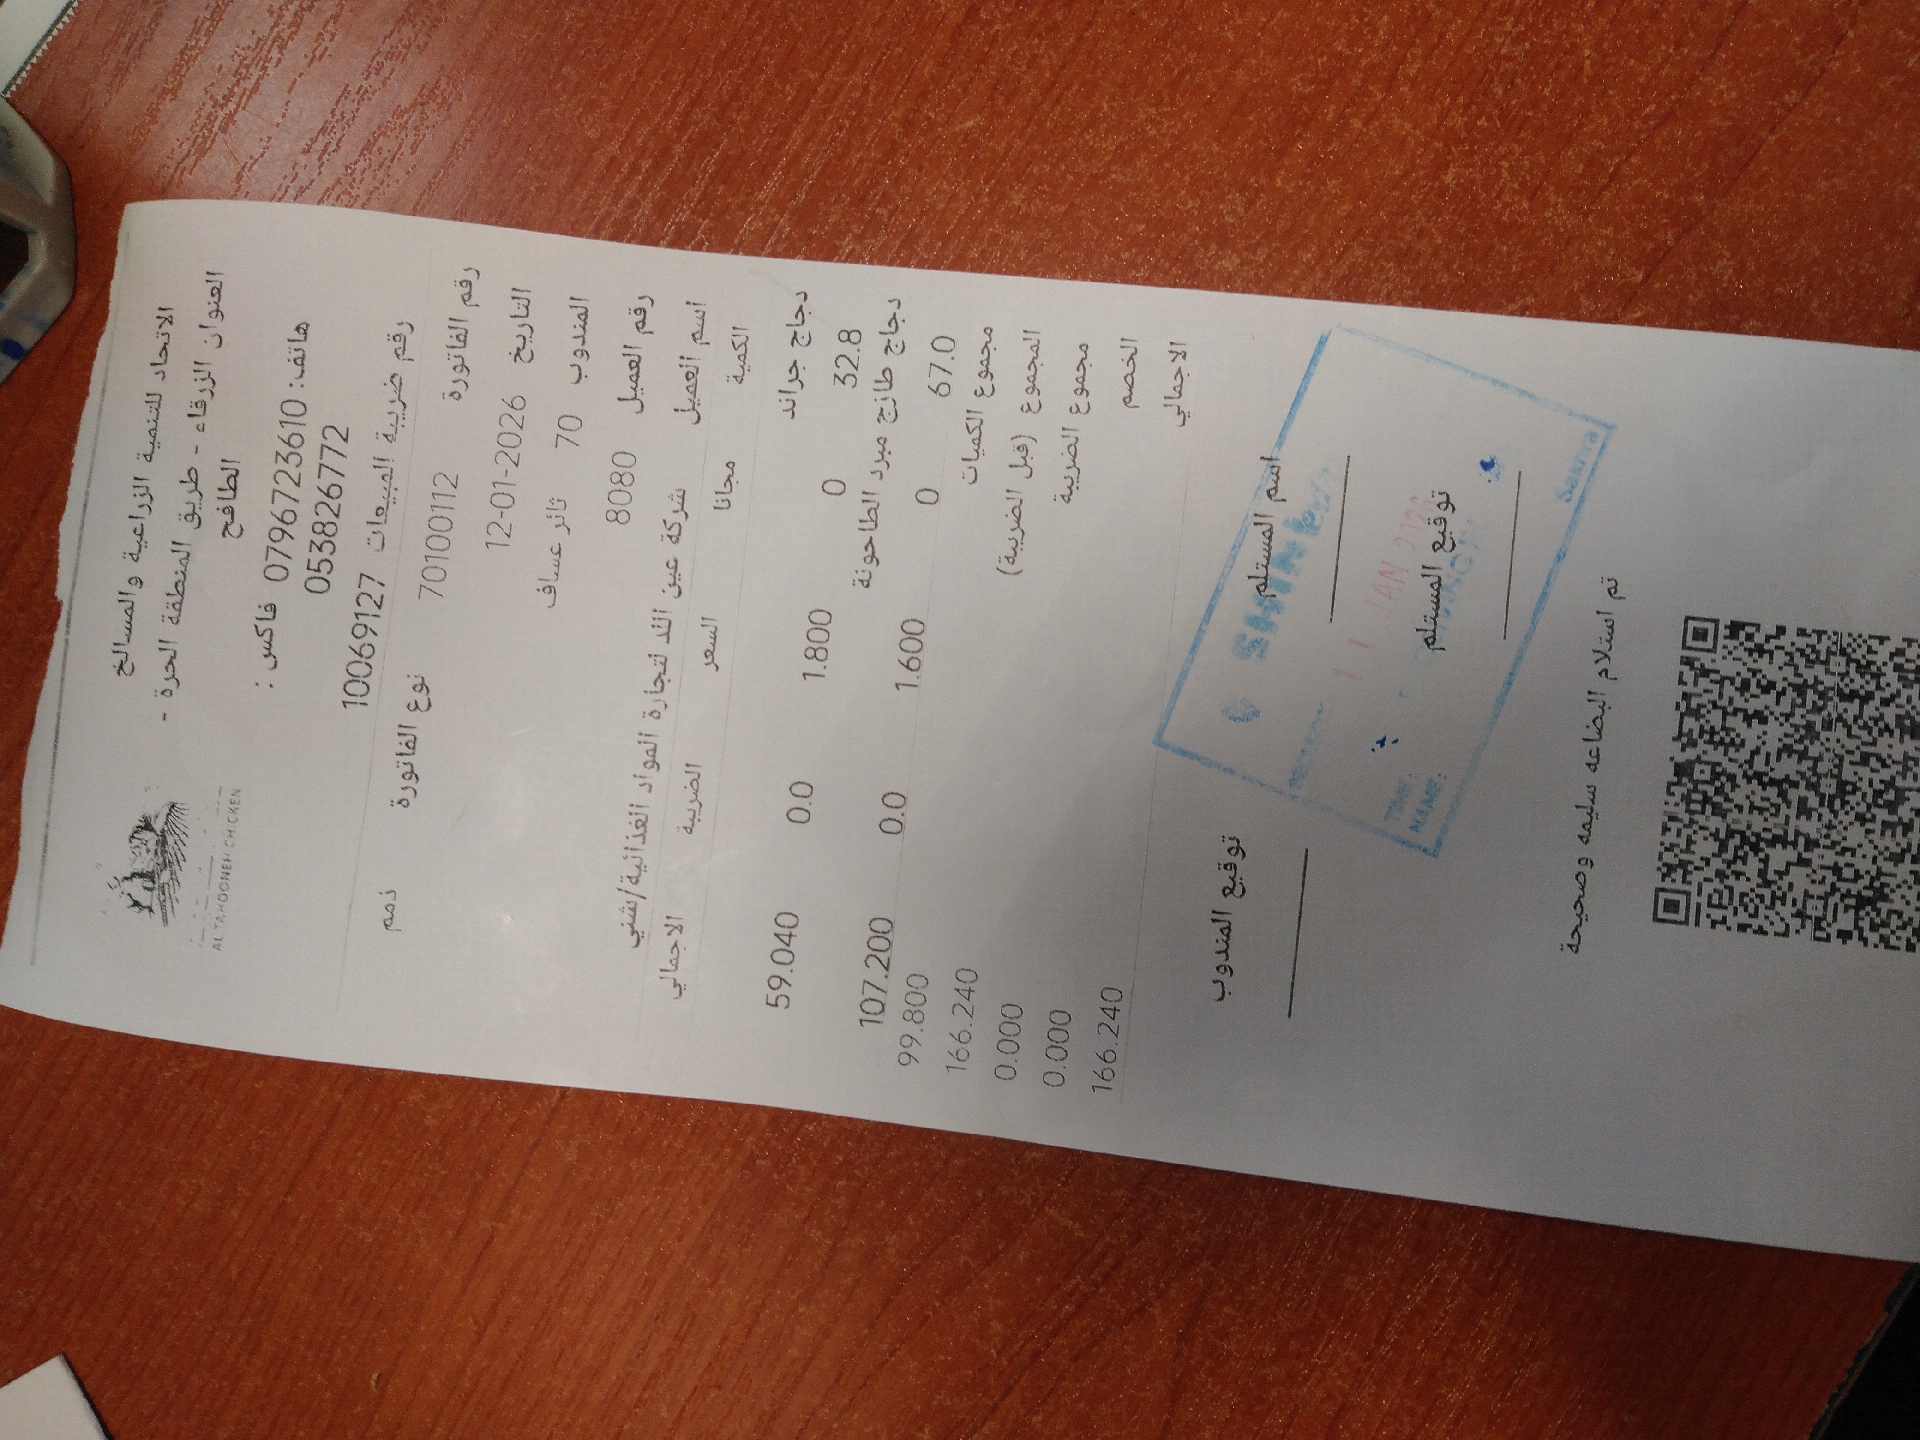 AL TAHOONEH CHICKEN
الاتحاد للتنمية الزراعية والمسالخ
العنوان الزرقاء - طريق المنطقة الحرة -
الطافح
هاتف: 0796723610 فاكس :
053826772
رقم ضريبة المبيعات 10069127
رقم الفاتورة 70100112 نوع الفاتورة ذمم
التاريخ 12-01-2026
المندوب 70 ثائر عساف
رقم العميل 8080
اسم العميل شركة عين الغد لتجارة المواد الغذائية/شني
الكمية مجانا السعر الضريبة الاجمالي
دجاج جراند
32.8 0 1.800 0.0 59.040
دجاج طازج مبرد الطاحونة
67.0 0 1.600 0.0 107.200
مجموع الكميات 99.800
المجموع (قبل الضريبة) 166.240
مجموع الضريبة 0.000
الخصم 0.000
الاجمالي 166.240
اسم المستلم توقيع المندوب
JAN
توقيع المستلم
TIME:
NAME:
تم استلام البضاعه سليمه وصحيحة